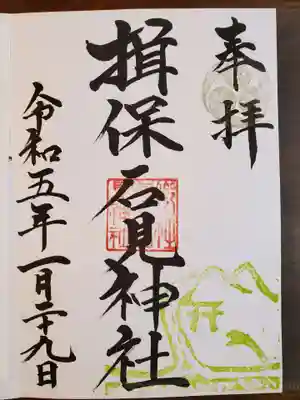 奉拝
揖保石見神社
令和五年一月二十九日